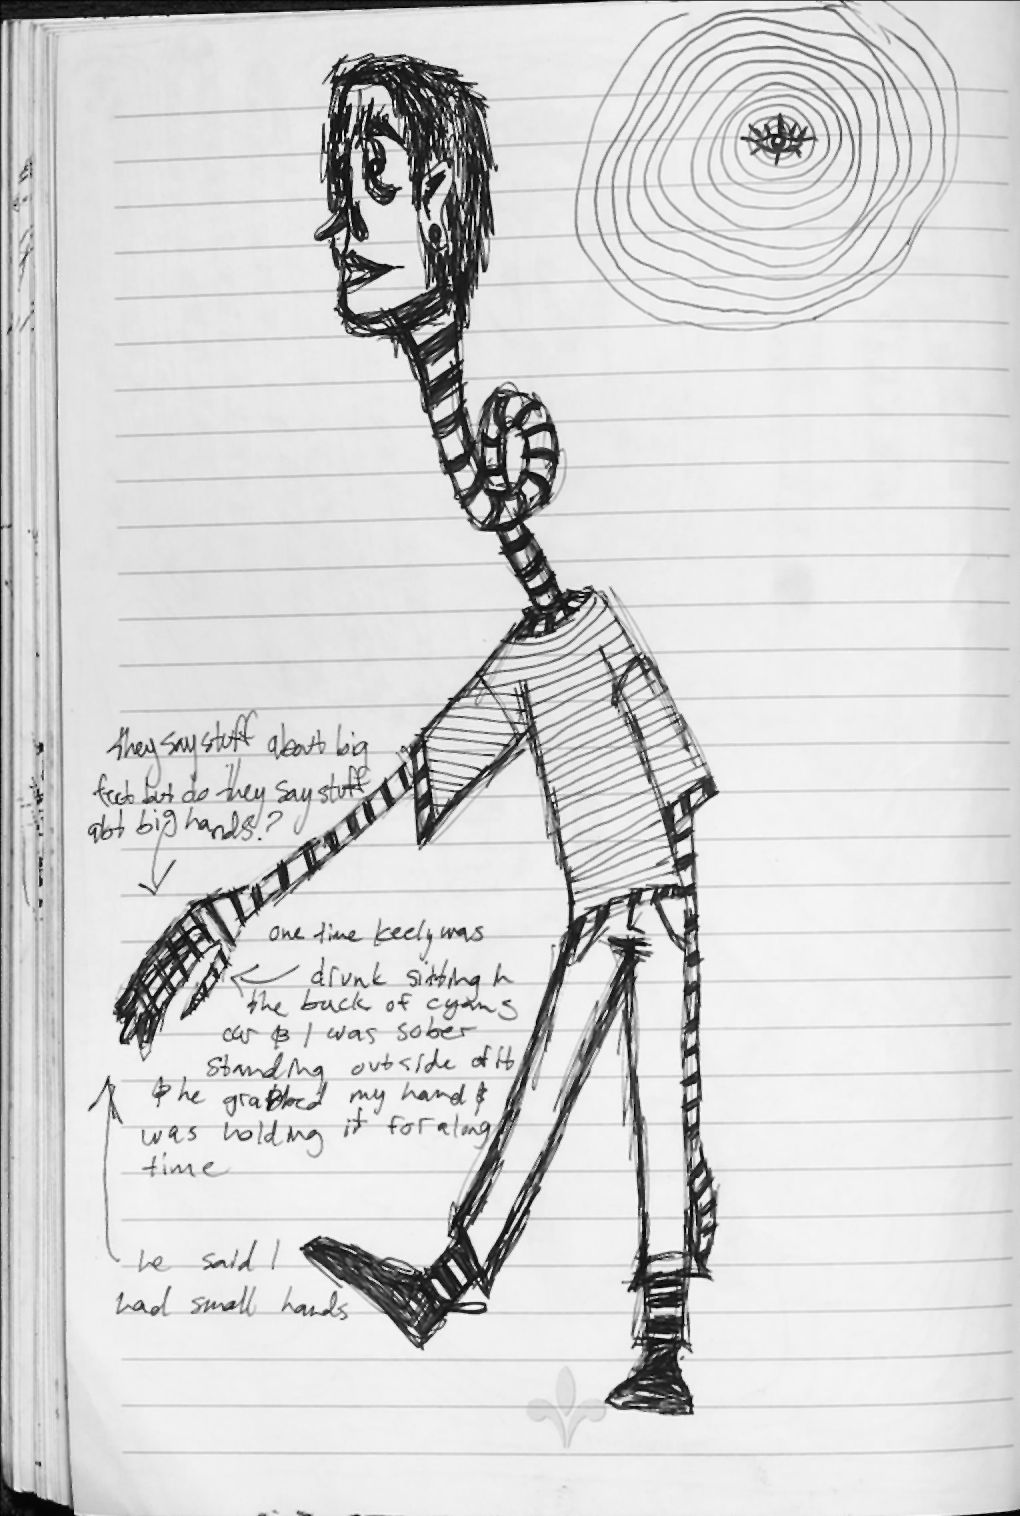 they say stuff about big
feet but do they say stuff
abt big hands?
one time keely was
drunk sitting in
the back of cyans
car & I was sober
standing outside of it
& he grabbed my hand &
was holding it for along
time
he said I
had small hands